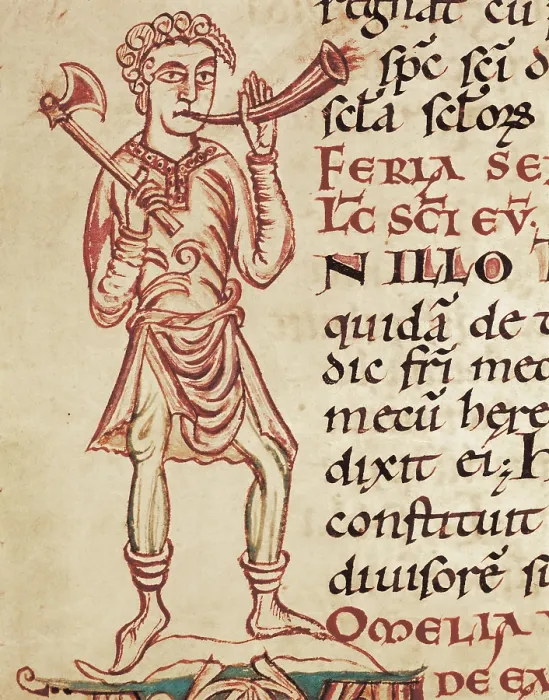 regnat cu
spc̄ sci̅ d
sctā sctor̄
FERIA SE
LC SCI EV.
N ILLO T
quidā de t
dic frī mec
mecū here
dixit ei; H
constituit
diuisorē si
OMELIA
DE EA